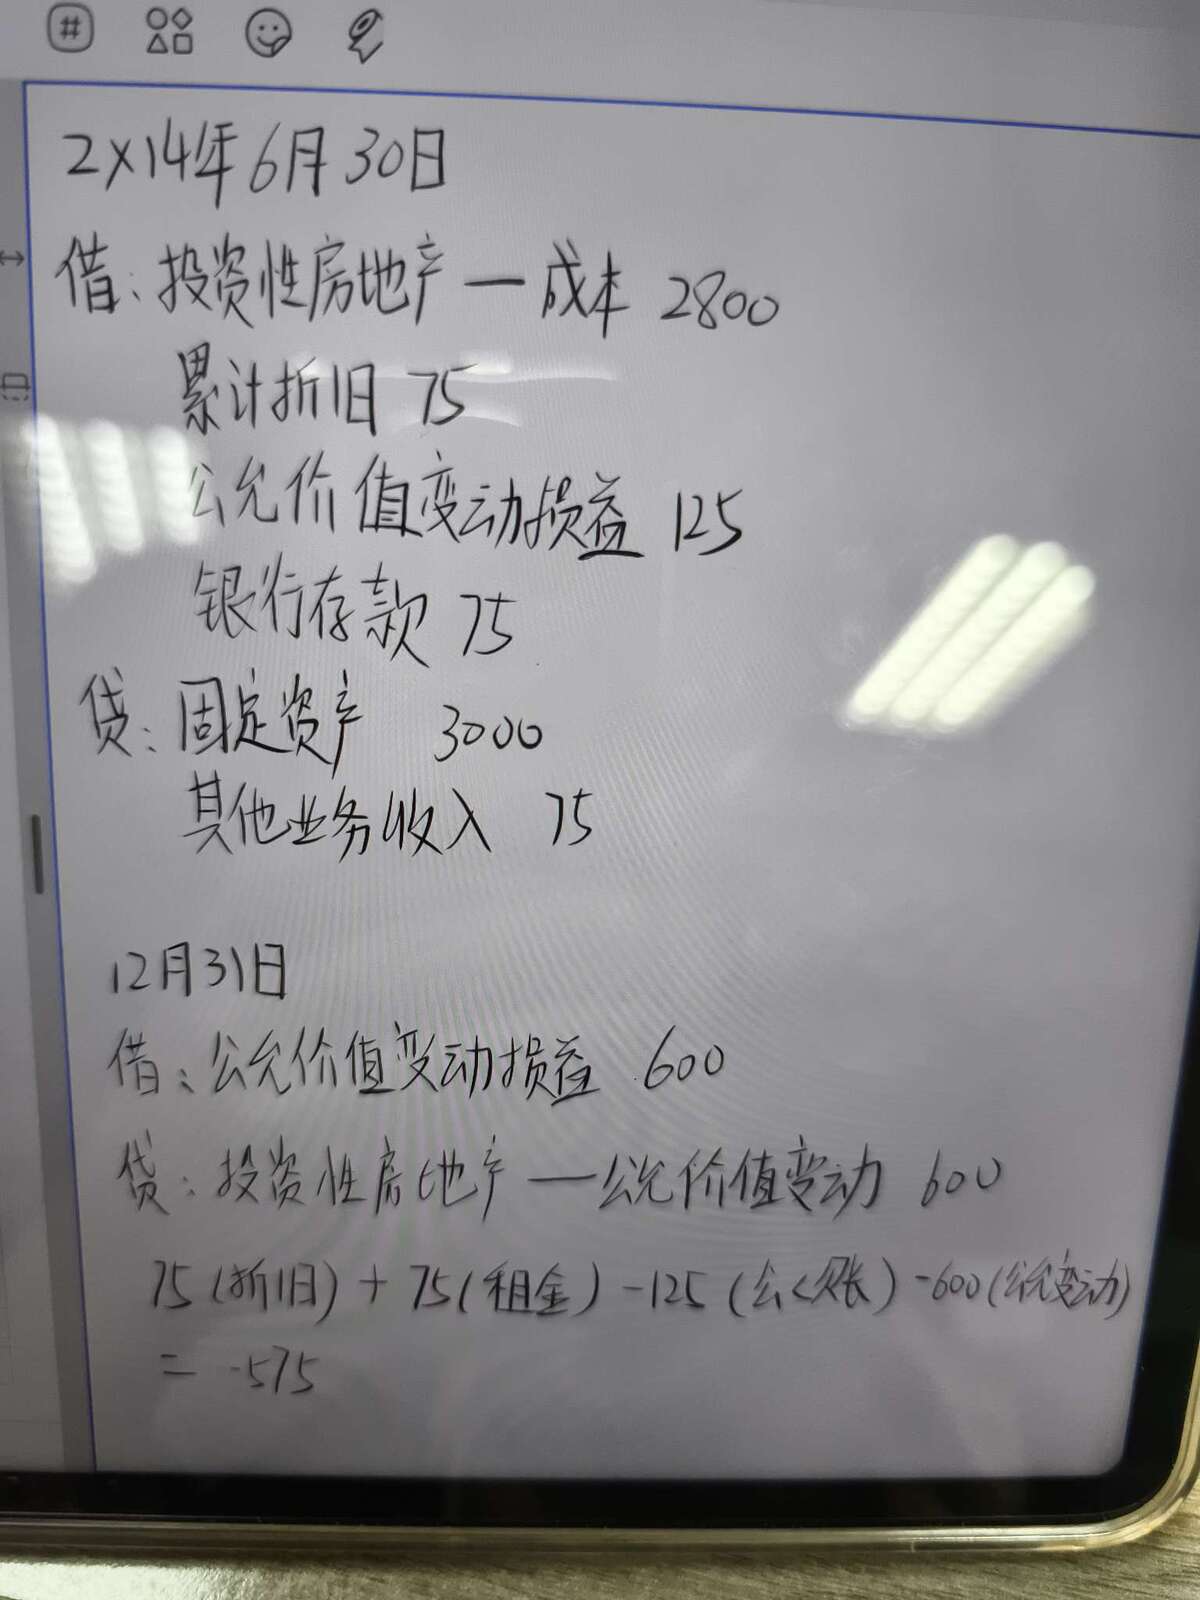 2×14年6月30日
借：投资性房地产—成本 2800
累计折旧 75
公允价值变动损益 125
银行存款 75
贷：固定资产 3000
其他业务收入 75
12月31日
借：公允价值变动损益 600
贷：投资性房地产—公允价值变动 600
75(折旧)+75(租金)-125(公<账)-600(公允变动)
= -575